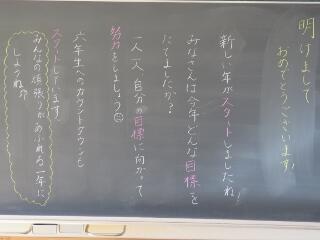 明けまして
おめでとうございます
新しい年がスタートしましたね!
みなさんは今年どんな目標を
たてましたか?
一人一人自分の目標に向かって
努力をしましょう☺
六年生へのカウントダウンも
スタートしています。
みんなの頑張りがあふれる一年に
しようね